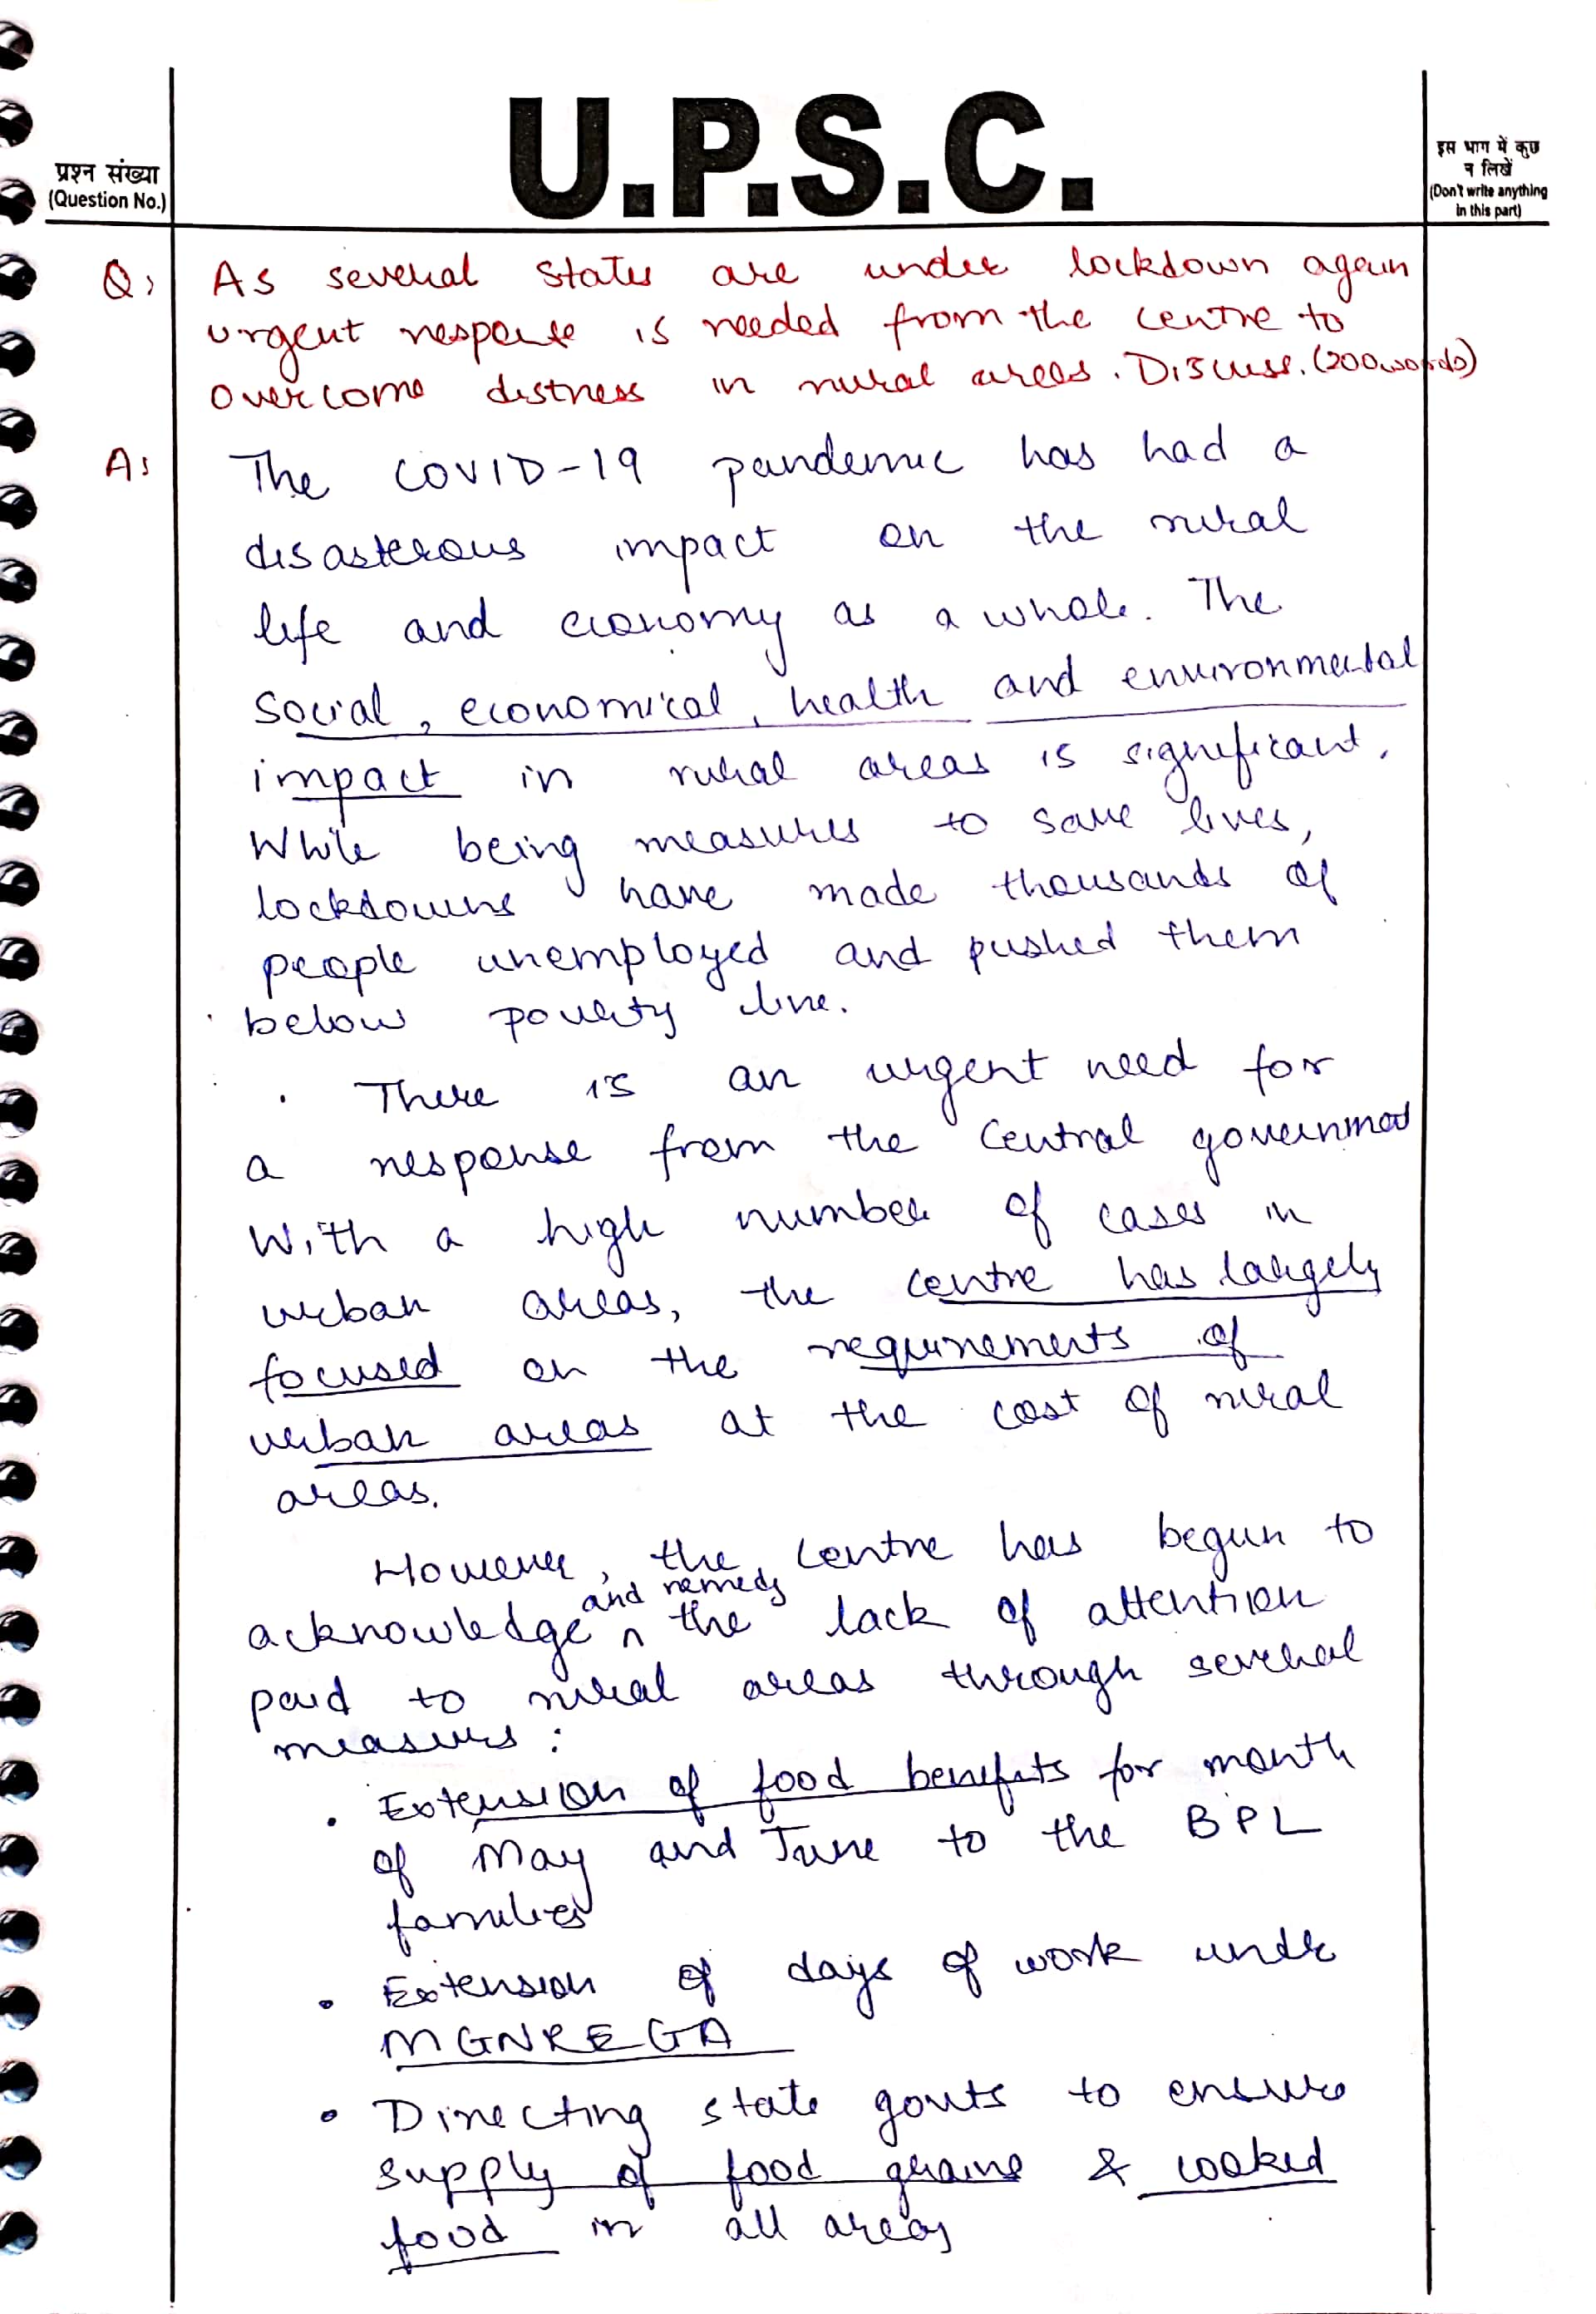 U.P.S.C.
प्रश्न संख्या
(Question No.)
इस भाग में कुछ
न लिखें
(Don't write anything
in this part)
Q: As several states are under lockdown again
urgent response is needed from the centre to
overcome distress in rural areas. Discuss. (200 words)
A: The COVID-19 pandemic has had a
disasterous impact on the rural
life and economy as a whole. The
social, economical, health and environmental
impact in rural areas is significant.
While being measures to save lives,
lockdowns have made thousands of
people unemployed and pushed them
below poverty line.
There is an urgent need for
a response from the Central government
With a high number of cases in
urban areas, the centre has largely
focused on the requirements of
urban areas at the cost of rural
areas.
However, the centre has begun to
and remedy
acknowledge ^ the lack of attention
paid to rural areas through several
measures :
• Extension of food benefits for month
of May and June to the BPL
families
• Extension of days of work under
MGNREGA
• Directing state govts to ensure
supply of food grains & cooked
food in all areas